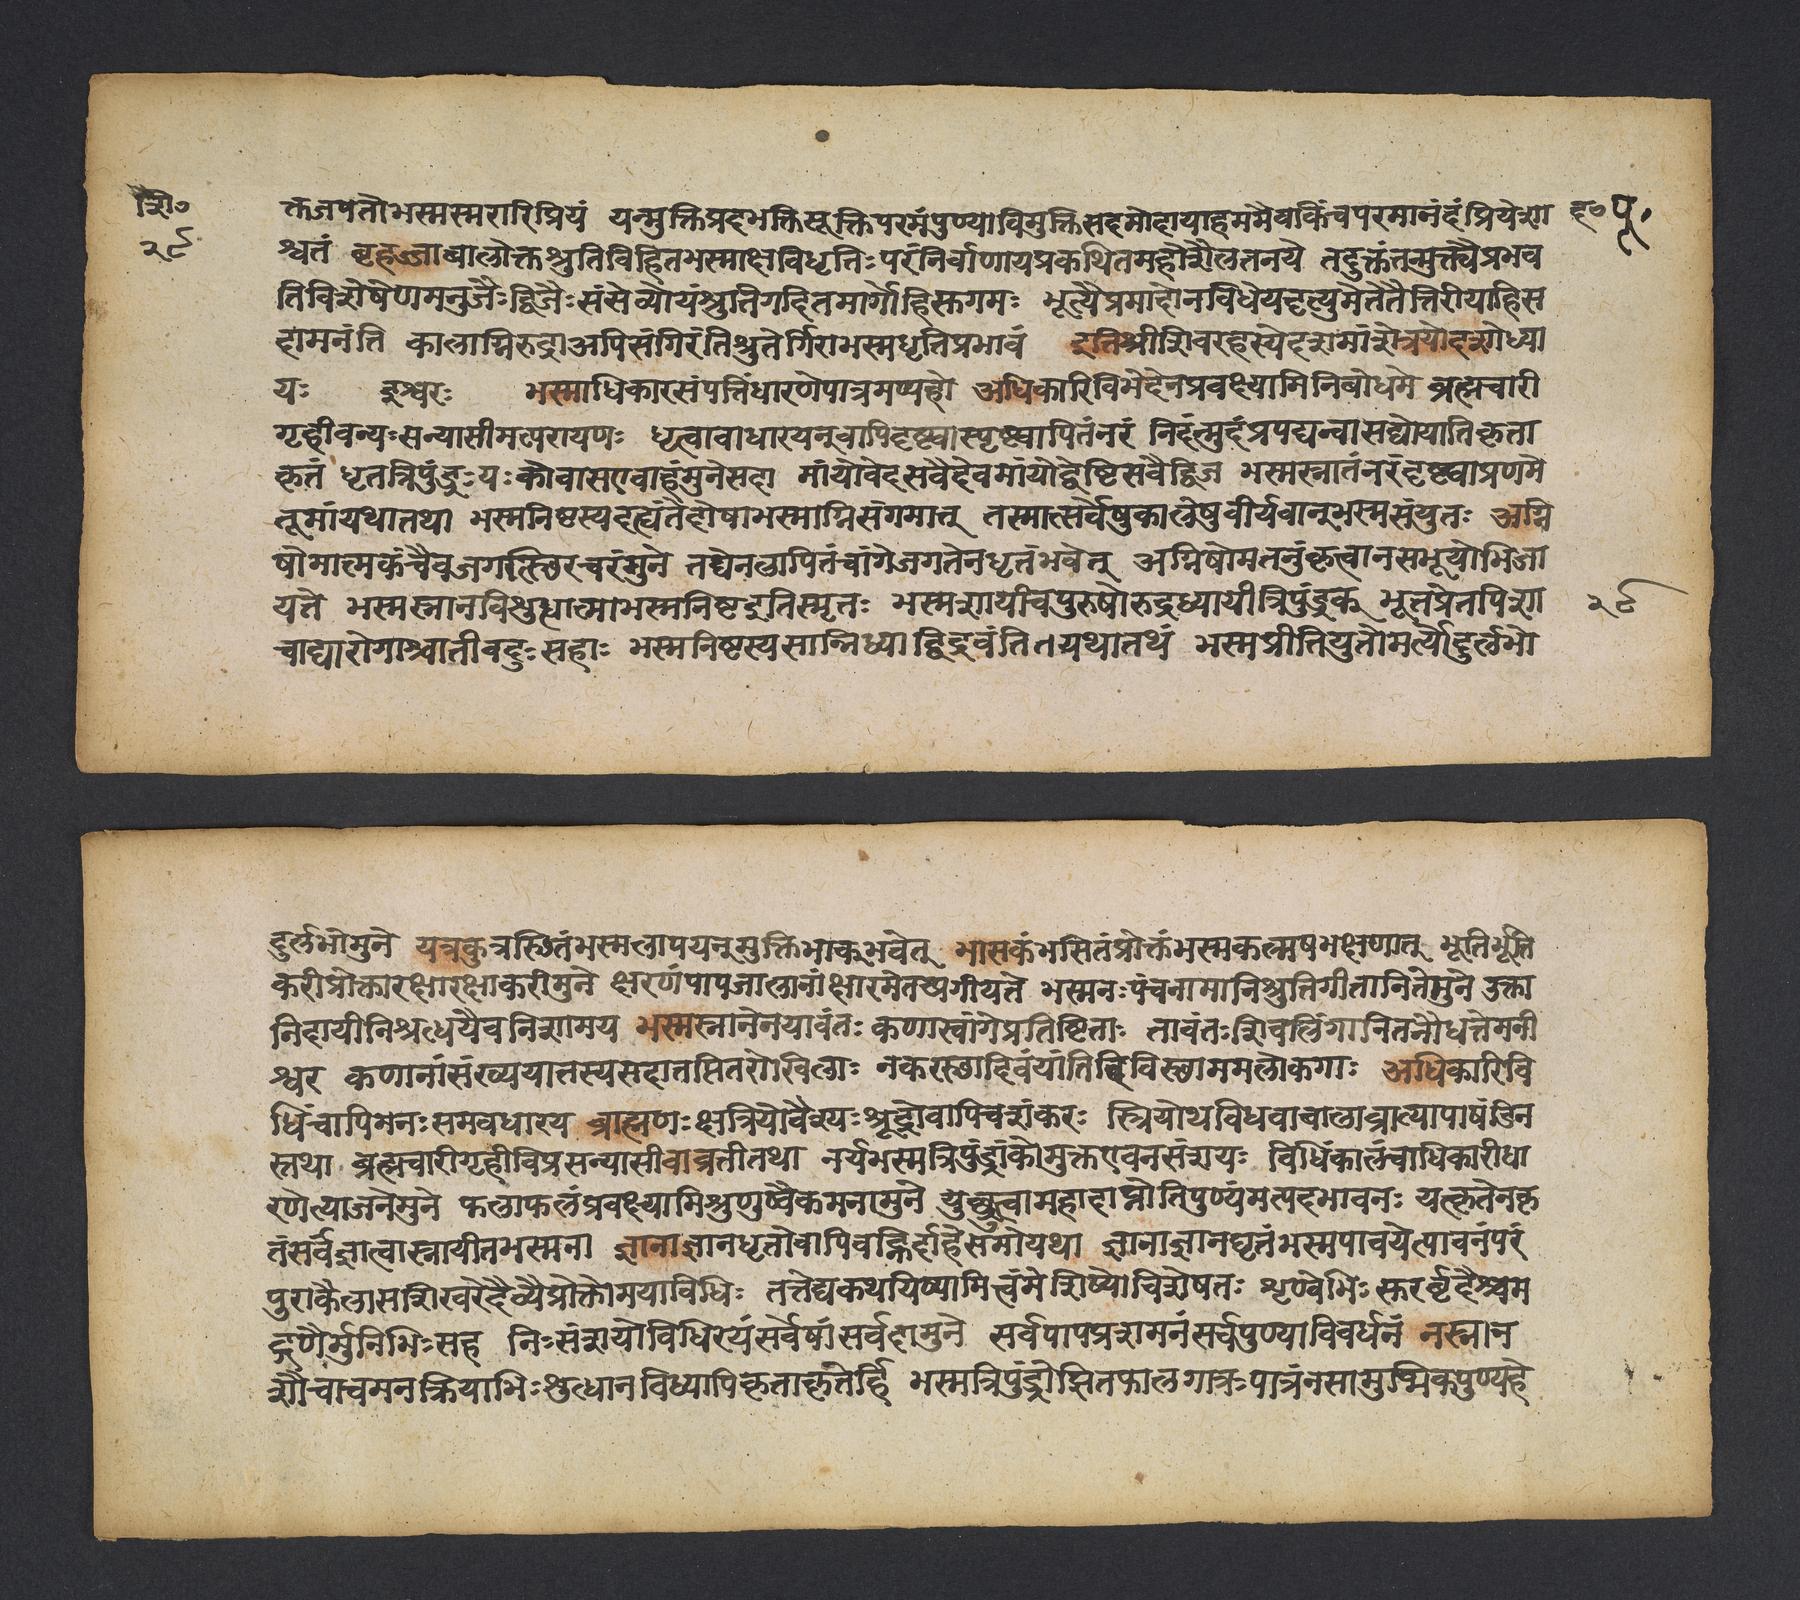 शि०
२९
क्तजपतोभस्मस्मरारिप्रियं यन्मुक्तिप्रदभक्तिसूक्तिपरमंपुण्याविमुक्तिसदमोदायाहममैवकिंचपरमानंदंप्रियेशा
द०पू.
श्वतं बृहज्जाबालोक्तश्रुतिविहितभस्माक्षविधृतिः परंनिर्वाणायप्रकथितमहोशैलतनये तद्युक्तंतन्मुक्त्यैप्रभव
तिविशेषेणमनुजैः द्विजैः संसेव्योयंश्रुतिगदितमार्गोहिस्तगमः भूत्यैप्रमादोनविधेयइत्युमेतेतैत्तिरीयाहिस
दामनंति कालाग्निरुद्राअपिसंगिरंतिश्रुतेर्गिराभस्मधृतिप्रभावं इतिश्रीशिवरहस्येदशमांशेत्रयोदशोध्या
यः ईश्वरः भस्माधिकारसंपत्तिंधारणेपात्रमप्यहो अधिकारिविभेदेनप्रवक्ष्यामिनिबोधमे ब्रह्मचारी
गृहीवन्यः सन्यासीमत्परायणः धृत्वावाधारयन्वापिदृष्ट्वास्पृष्ट्वापितंनरं निर्द्वत्मुहंप्रपद्यन्वासद्योयातिकृता
कृतं धृतत्रिपुंड्रः यः कोवासएवाहंमुनेसदा मांयोवेदसवैदेवमांयोद्वेष्टिसवैद्विज भस्मस्नातंनरंदृष्ट्वाप्रणमे
तूमांयथातथा भस्मनिष्टस्यदह्यंतेदोषाभस्माग्निसंगमात् तस्मात्सर्वेषुकालेषुवीर्यवान्भस्मसंयुतः अग्नि
षोमात्मकंचैवजगत्स्थिरचरंमुने तद्येनलापितंचांगेजगतेनधृतंभवेत् अग्निषोमतनुंकृत्वानसभूयोभिजा
यते भस्मस्नानविशुद्धात्माभस्मनिष्टइतिस्मृतः भस्मशायीचपुरुषोरुद्रध्यायीत्रिपुंड्रक् भूतप्रेतपिशा
२९
चाद्यारोगाश्चातीवदुः सहाः भस्मनिष्टस्यसान्निध्याद्विद्रवंतितयथातथं भस्मप्रीतियुतोमर्त्योदुर्लभो
दुर्लभोमुने यत्रकुत्रस्थितंभस्मलापयन्मुक्तिभाक्भवेत् भासकंभसितंप्रोक्तंभस्मकल्मषभक्षणात् भूतिर्भूति
करीप्रोक्तारक्षारक्षाकरीमुने क्षरणंपापजालानांक्षारमेतत्प्रगीयते भस्मनः पंचनामानिश्रुतिगीतानितेमुने उक्ता
निदायीनिश्रध्धेयैवनिशामय भस्मस्नानेनयावंतः कणास्वांगेप्रतिष्टिताः तावंतः शिवलिंगानितनौधत्तेमनी
श्वर कणानांसंख्ययातस्यसहातप्तितरोखिलाः नकरस्छादिवंयांतिदिविस्छाममलोकगाः अधिकारिवि
धिंचापिमनः समवधारय ब्राह्मणः क्षत्रियोवैश्यः श्रूद्रोवापिचशंकरः स्त्रियोथविधवाबालाव्रात्यापाषंडिन
स्तथा ब्रह्मचारीगृहीविप्रसन्यासीवाव्रतीतथा नर्यभस्मत्रिपुंड्रांकोमुक्तएवनसंशयः विधिंकालंचाधिकारीधा
रणेत्याजनेमुने फलाफलंप्रवक्ष्यामिश्रुणुष्वैकमनामुने युच्छ्रुत्वामहादाप्नोतिपुण्यंमत्पदभावनः यत्कृतेनकृ
तंसर्वंज्ञात्वास्नायीतभस्मना ज्ञानाज्ञानधृतोवापिवह्निर्दाहेसमोयथा ज्ञानाज्ञानघृतंभस्मपावयेत्पावनंपरं
पुराकैलासशिखरेदेव्यैप्रोक्तोमयाविधिः तत्तेद्यकथयिष्यामित्वंमेशिष्योविशेषतः शृण्वेभिः स्करर्वृदैश्चम
द्गणैर्मुनिभिः सह निः संशयोविधिरेयंसर्वेषांसर्वदामुने सर्वपापप्रशमनंसर्वपुण्याविवर्धनं नस्नान
शौचाचमनक्रियाभिः शुध्धोनविध्यापिकृताकृतेर्हि भस्मत्रिपुंड्रोझितफालगात्रः पात्रंनसामुष्मिकपुण्यदे